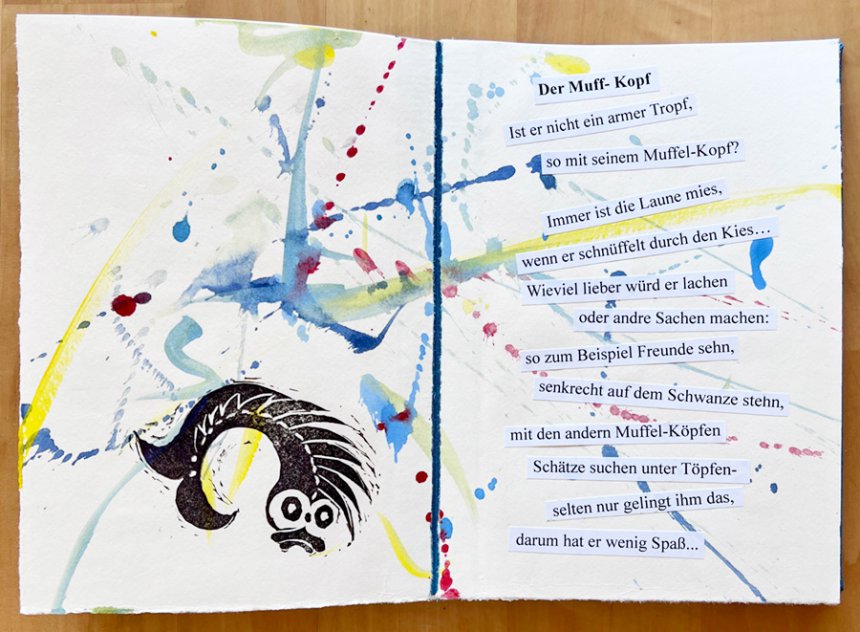 Der Muff- Kopf
Ist er nicht ein armer Tropf,
so mit seinem Muffel-Kopf?
Immer ist die Laune mies,
wenn er schnüffelt durch den Kies...
Wieviel lieber würd er lachen
oder andre Sachen machen:
so zum Beispiel Freunde sehn,
senkrecht auf dem Schwanze stehn,
mit den andern Muffel-Köpfen
Schätze suchen unter Töpfen-
selten nur gelingt ihm das,
darum hat er wenig Spaß...